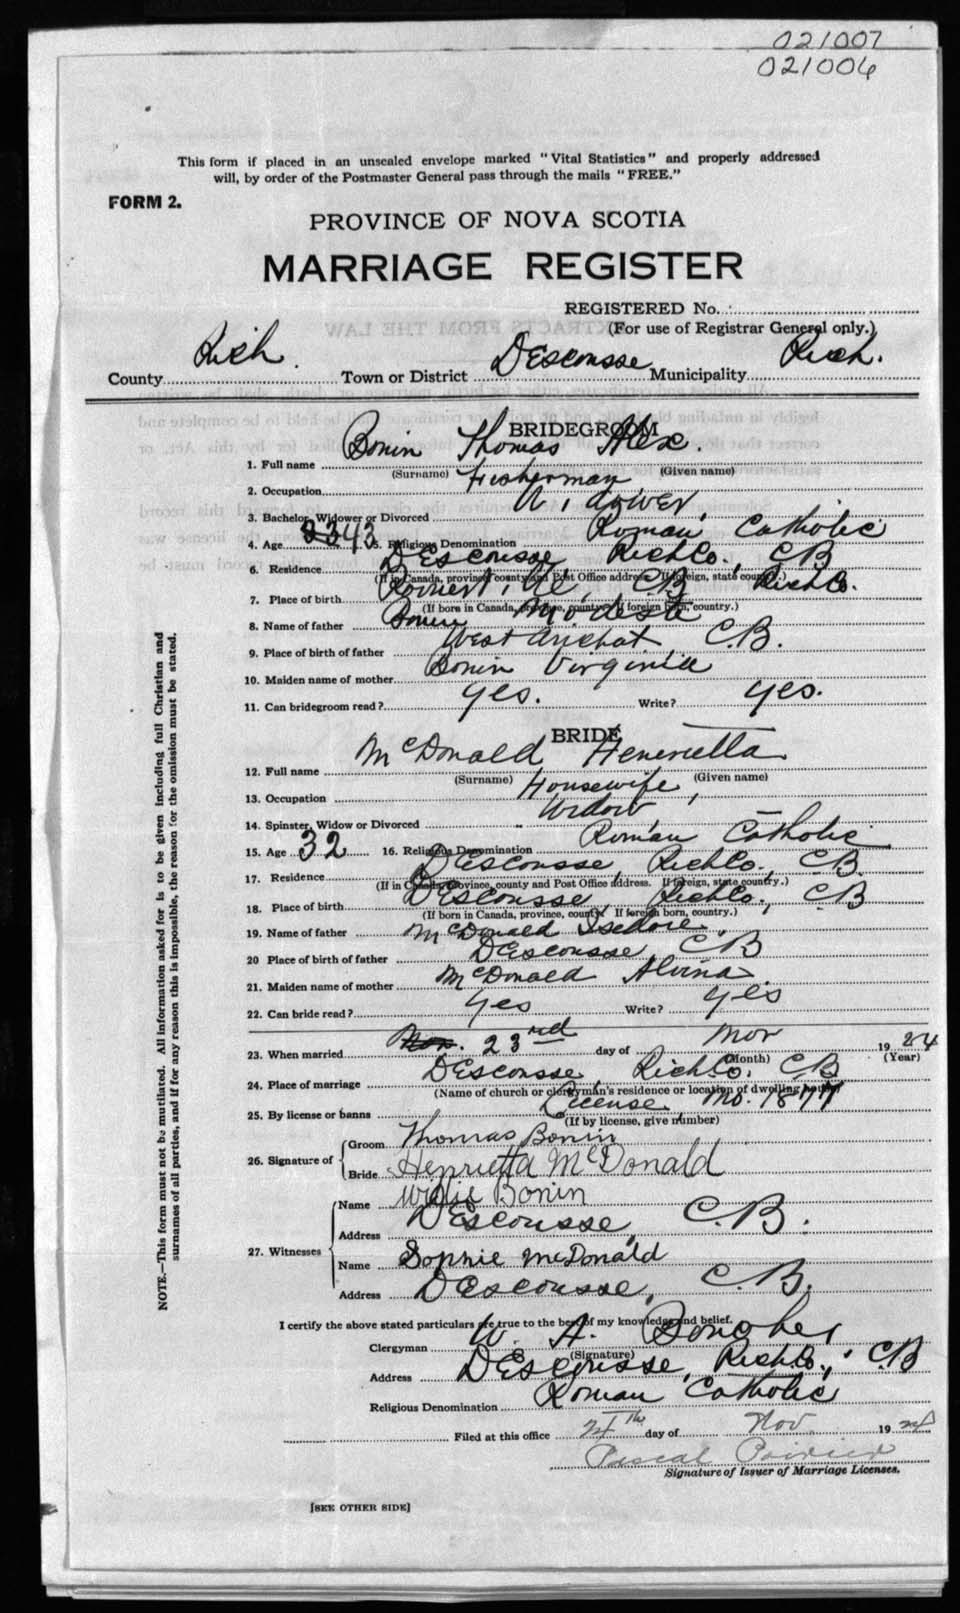 021007
021006
This form if placed in an unsealed envelope marked "Vital Statistics" and properly addressed
will, by order of the Postmaster General pass through the mails "FREE."
FORM 2.
PROVINCE OF NOVA SCOTIA
MARRIAGE REGISTER
REGISTERED No.
(For use of Registrar General only.)
County Rich. Town or District DEscousse Municipality Rich.
BRIDEGROOM
1. Full name Bonin Thomas Alex.
(Surname) (Given name)
2. Occupation Fisherman
3. Bachelor, Widower or Divorced Widower,
4. Age 43 5. Religious Denomination Roman Catholic
6. Residence DEscousse, Rich Co., CB
(If in Canada, province county and Post Office address. If foreign, state country.)
7. Place of birth CB Rich Co.
(If born in Canada, province, county. If foreign born, country.)
8. Name of father Bonin Modeste
9. Place of birth of father West Arichat C.B.
10. Maiden name of mother Bonin Virginia
11. Can bridegroom read? yes. Write? yes.
BRIDE
12. Full name McDonald Henrietta
(Surname) (Given name)
13. Occupation Housewife,
14. Spinster, Widow or Divorced Widow
15. Age 32 16. Religious Denomination Roman Catholic
17. Residence DEscousse, Rich Co., CB.
(If in Canada, province, county and Post Office address. If foreign, state country.)
18. Place of birth DEscousse, Rich Co., CB
(If born in Canada, province, county. If foreign born, country.)
19. Name of father McDonald Isedore,
20 Place of birth of father DEscousse CB
21. Maiden name of mother McDonald Alvina
22. Can bride read? yes Write? yes
23. When married Nov. 23rd day of Nov 1924
(Month) (Year)
24. Place of marriage DEscousse, Rich Co. CB
(Name of church or clergyman's residence or location of dwelling house)
25. By license or banns License No. 1877
(If by license, give number)
26. Signature of Groom Thomas Bonin
Bride Henrietta McDonald
27. Witnesses Name Willie Bonin
Address DEscousse, C.B.
Name Sophie McDonald
Address DEscousse, CB.
I certify the above stated particulars are true to the best of my knowledge and belief.
Clergyman W. A.
(Signature)
Address DEscousse, Rich Co., CB
Religious Denomination Roman Catholic
Filed at this office 24th day of Nov. 1924
Pascal Poirier
Signature of Issuer of Marriage Licenses.
[SEE OTHER SIDE]
NOTE.—This form must not be mutilated. All information asked for is to be given including full Christian and
surnames of all parties, and if for any reason this is impossible, the reason for the omission must be stated.